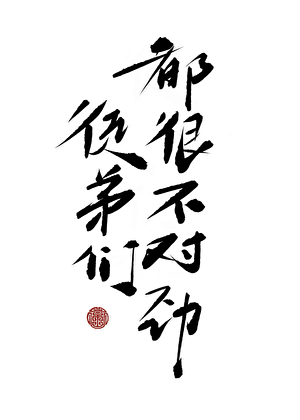 徒弟们
都很不对劲